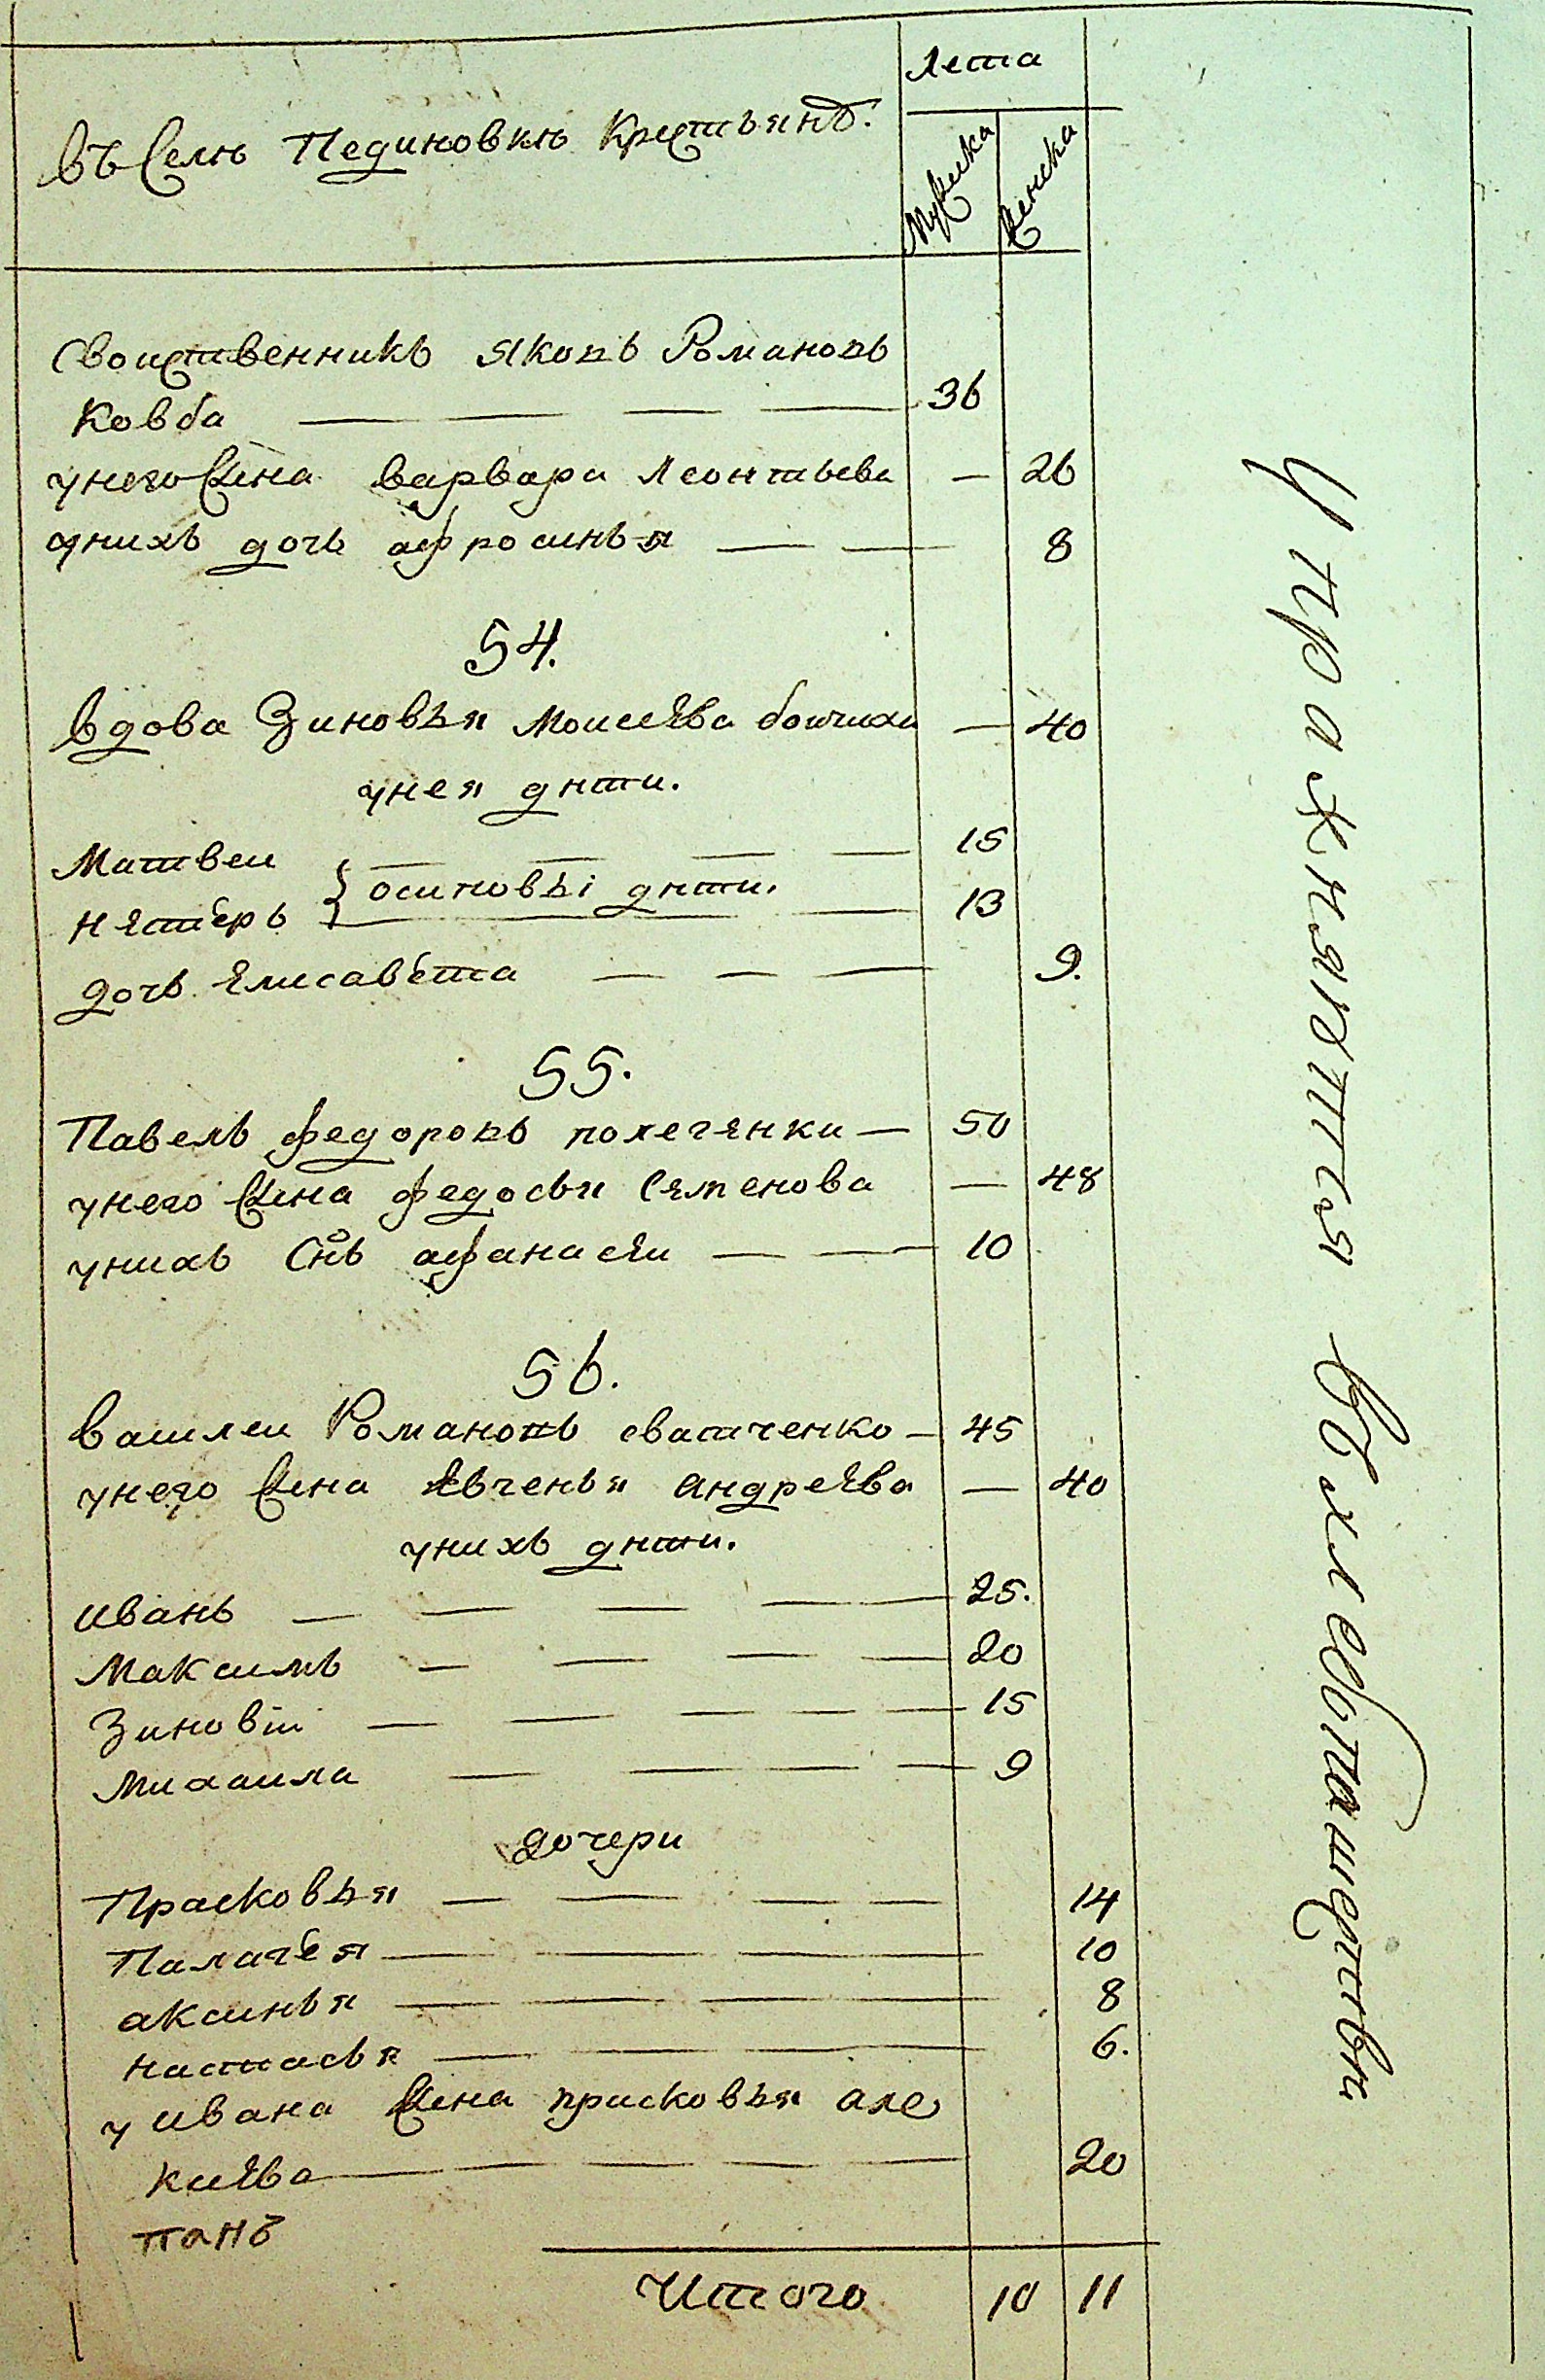 Лета
въ Селѣ Пединовкѣ Крестьянъ.
Мужска
Женска
Своиственникъ Яковъ Романовъ
Ковба 36
унего жена варвара Леонтьева — 26
унихъ дочь афросинья 8
54.
вдова Зиновья Моисеева боичиха — 40
унея дѣти.
Матвеи 15
осиповы дѣти.
нестеръ 13
дочь Елисавета 9.
55.
Павелъ федоровъ полегенки — 50
унего жена федосья Семенова — 48
унихъ Снъ афанасеи 10
56.
василеи Романовъ сватченко — 45
унего жена Евгенья андреева — 40
унихъ дѣти.
иванъ 25.
Максимъ 20
Зиновіи 15
Михаила 9
дочери
Прасковья 14
Палагея 10
аксинья 8
настасья 6.
у ивана жена прасковья але
киева 20
панъ
Итого 10 11
Упражняется въ хлебопашерстви